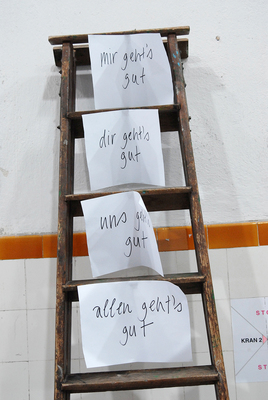 mir geht's
gut
dir geht's
gut
uns
gut
allen geht's
gut
KRAN 2